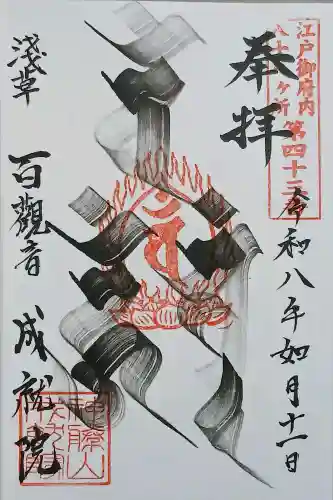 奉拝
江戸御府内
八十八ヶ所
第四十三
令和八年如月十一日
浅草
百觀音
成就院